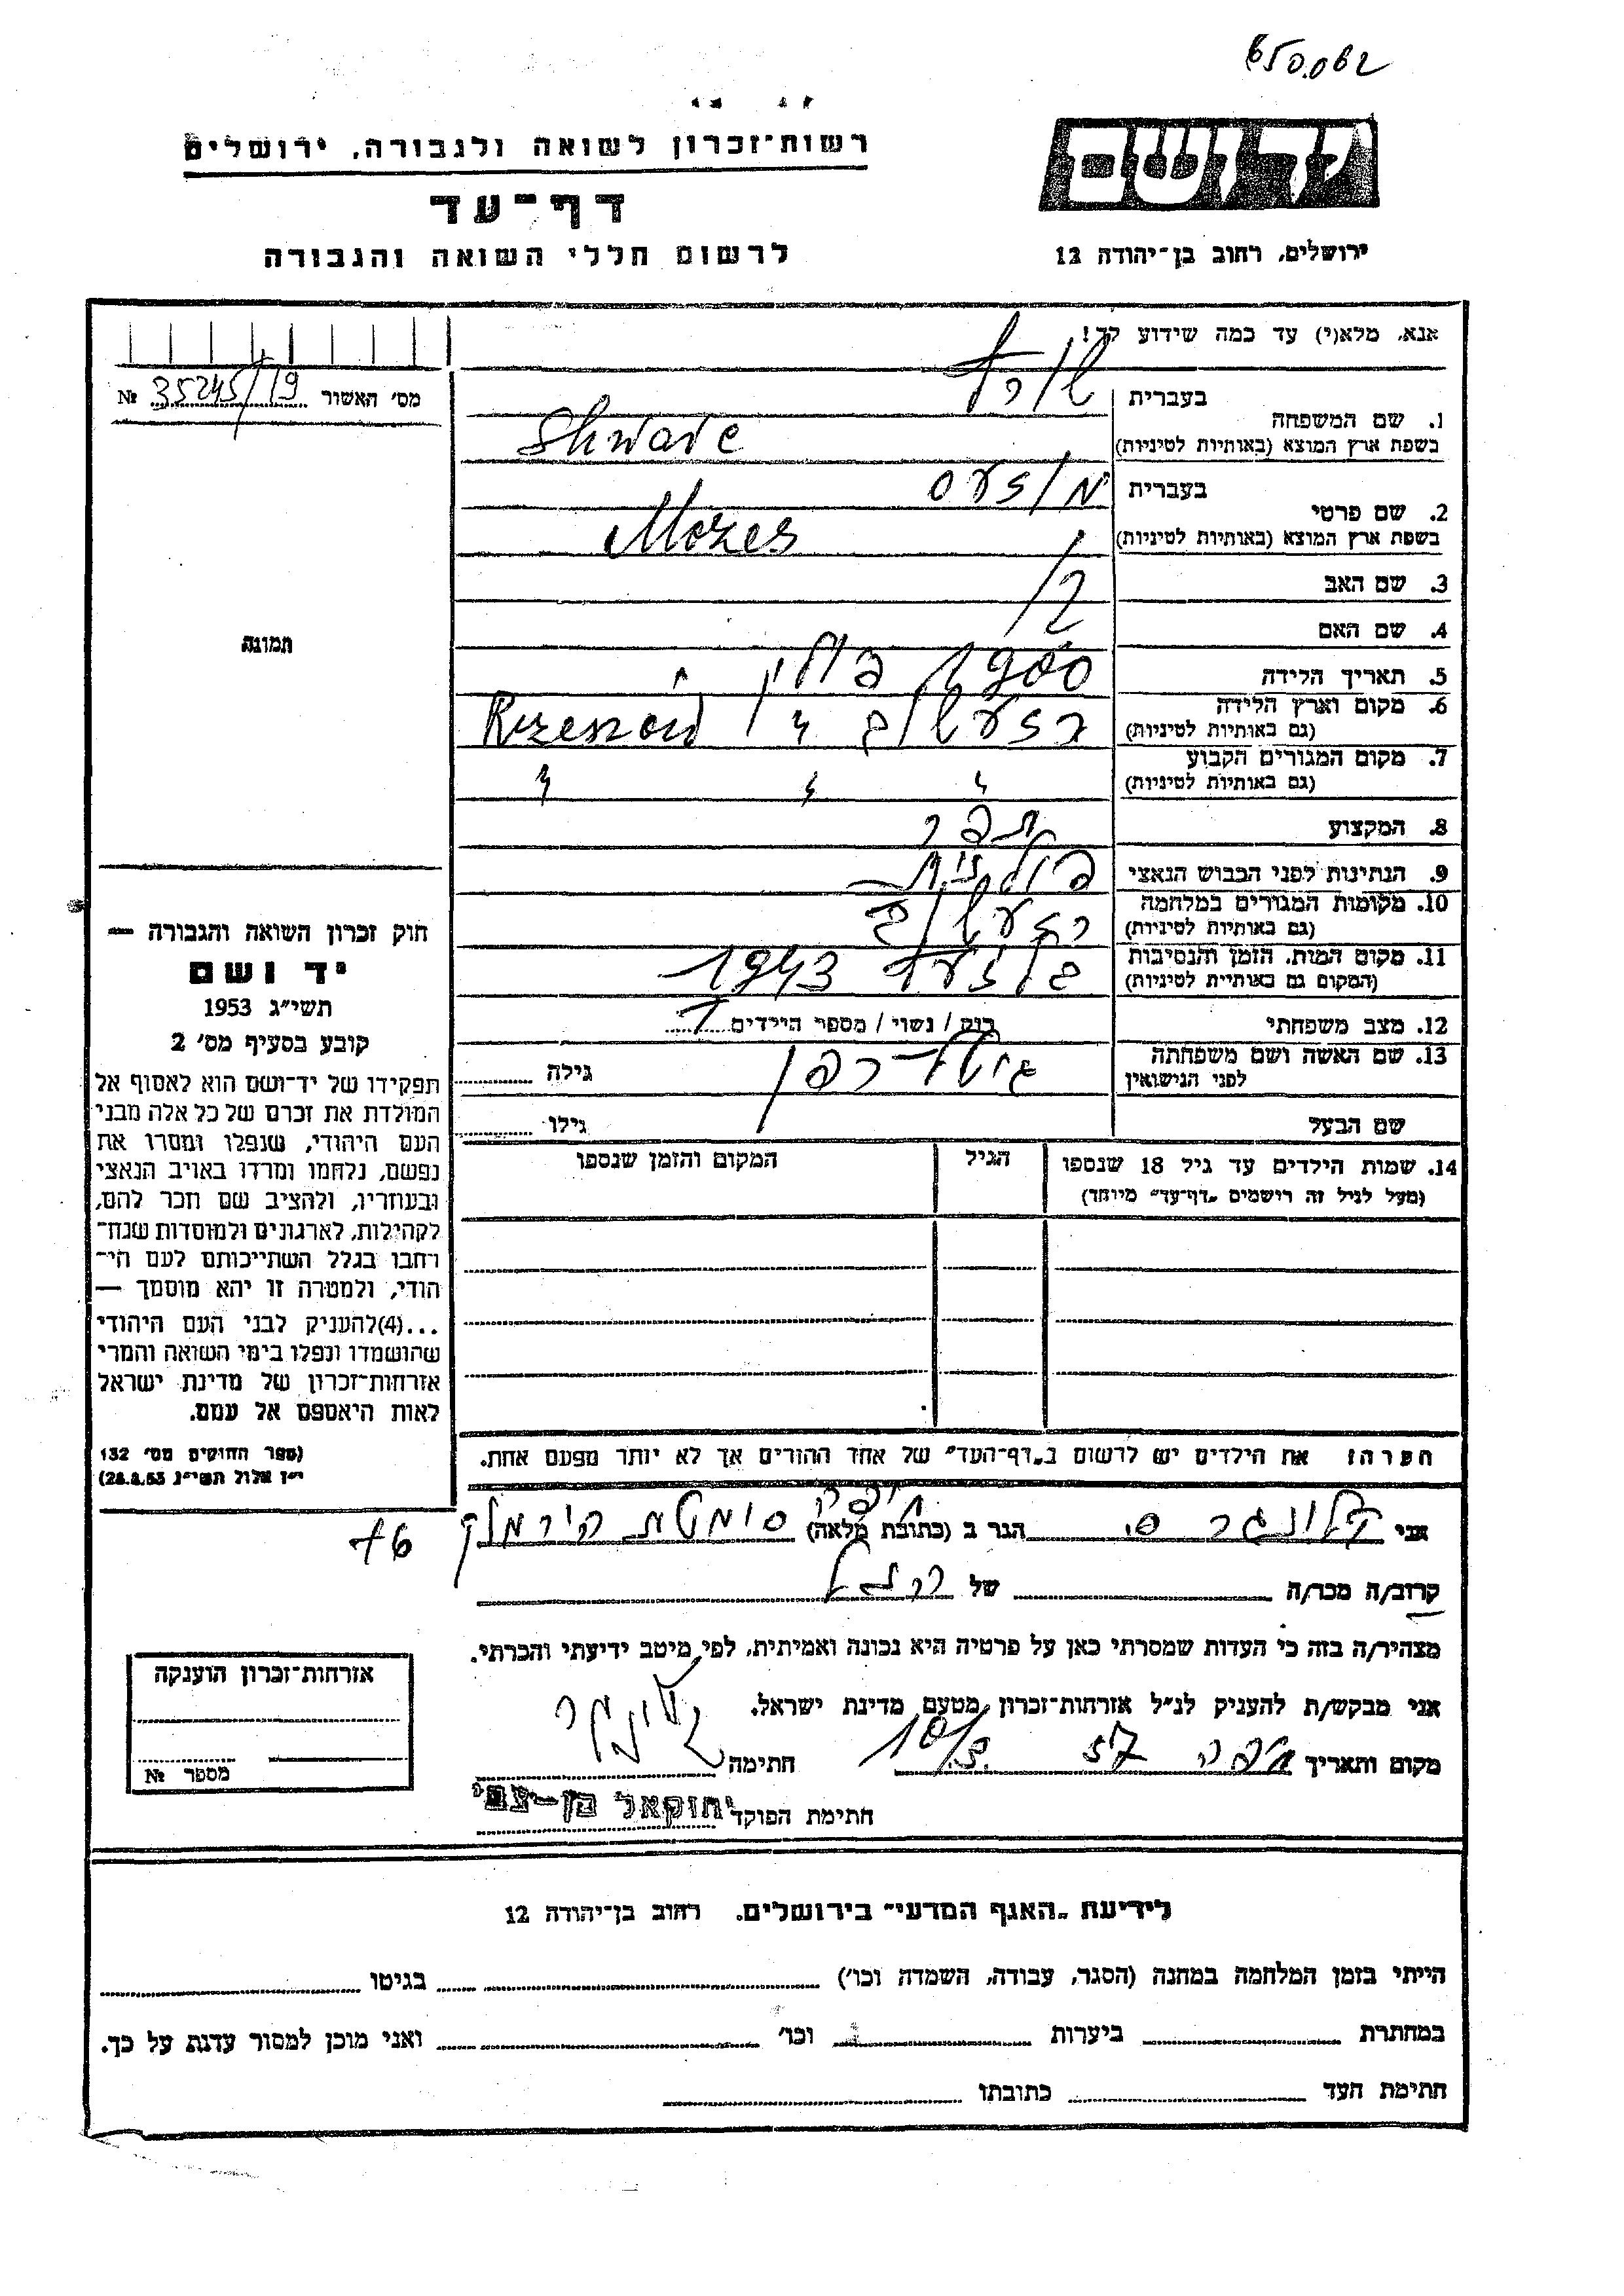 650.062
רשות־זכרון לשואה ולגבורה, ירושלים
יד ושם
דף־עד
לרשום חללי השואה והגבורה
ירושלים, רחוב בן־יהודה 12
אנא, מלא(י) עד כמה שידוע לך!
מס׳ האשור 35245/19 №
תמונה
1. שם המשפחה בעברית
(בשפת ארץ המוצא (באותיות לטיניות Shwarc
2. שם פרטי בעברית מוזעס
(בשפת ארץ המוצא (באותיות לטיניות Mozes
3. שם האב
4. שם האם
5. תאריך הלידה 1900 פולין
6. מקום וארץ הלידה
(גם באותיות לטיניות)
7. מקום המגורים הקבוע
(גם באותיות לטיניות)
8. המקצוע תפר
9. הנתינות לפני הכבוש הנאצי פולנית
10. מקומות המגורים במלחמה
(גם באותיות לטיניות)
11. מקום המות, הזמן והנסיבות 1943
(המקום גם באותיית לטיניות)
12. מצב משפחתי רווק / נשוי / מספר הילדים 1
13. שם האשה ושם משפחתה
לפני הנישואין גילה
שם הבעל גילו
14. שמות הילדים עד גיל 18 שנספו הגיל המקום והזמן שנספו
(מעל לגיל זה רישמים „דף־עד״ מיוחד)
חוק זכרון השואה והגבורה —
יד ושם
תשי״ג 1953
קובע בסעיף מס׳ 2
תפקידו של יד־ושם הוא לאסוף אל
המולדת את זכרם של כל אלה מבני
העם היהודי, שנפלו ומסרו את
נפשם, נלחמו ומרדו באויב הנאצי
ובעוזריו, ולהציב שם וזכר להם,
לקהילות, לארגונים ולמוסדות שנח־
רחבו בגלל השתייכותם לעם הי־
הודי, ולמטרה זו יהא מוסמך —
...(4)להעניק לבני העם היהודי
שהושמדו ונפלו בימי השואה והמרי
אזרחות־זכרון של מדינת ישראל
לאות היאספם אל עמם.
(ספר החוקים מס׳ 132
י״ז אלול תשי״ג 28.8.53)
הערה: את הילדים יש לרשום ב„דף־העד״ של אחד ההורים אך לא יותר מפעם אחת.
אני קלונגר ס. הגר ב (כתובת מלאה) חיפה סימטת הירמוק 76
קרוב/ה מכר/ה של
מצהיר/ה בזה כי העדות שמסרתי כאן על פרטיה היא נכונה ואמיתית, לפי מיטב ידיעתי והכרתי.
אני מבקש/ת להעניק לנ״ל אזרחות־זכרון מטעם מדינת ישראל.
מקום ותאריך חיפה 57 10/3. חתימה
חתימת הפוקד יחזקאל בן־צבי
אזרחות־זכרון הוענקה
מספר №
לידיעת „האגף המדעי״ בירושלים, רחוב בן־יהודה 12
הייתי בזמן המלחמה במחנה (הסגר, עבודה, השמדה וכו׳) בגיטו
במחתרת ביערות וכו׳ ואני מוכן למסור עדות על כך.
חתימת העד כתובתו